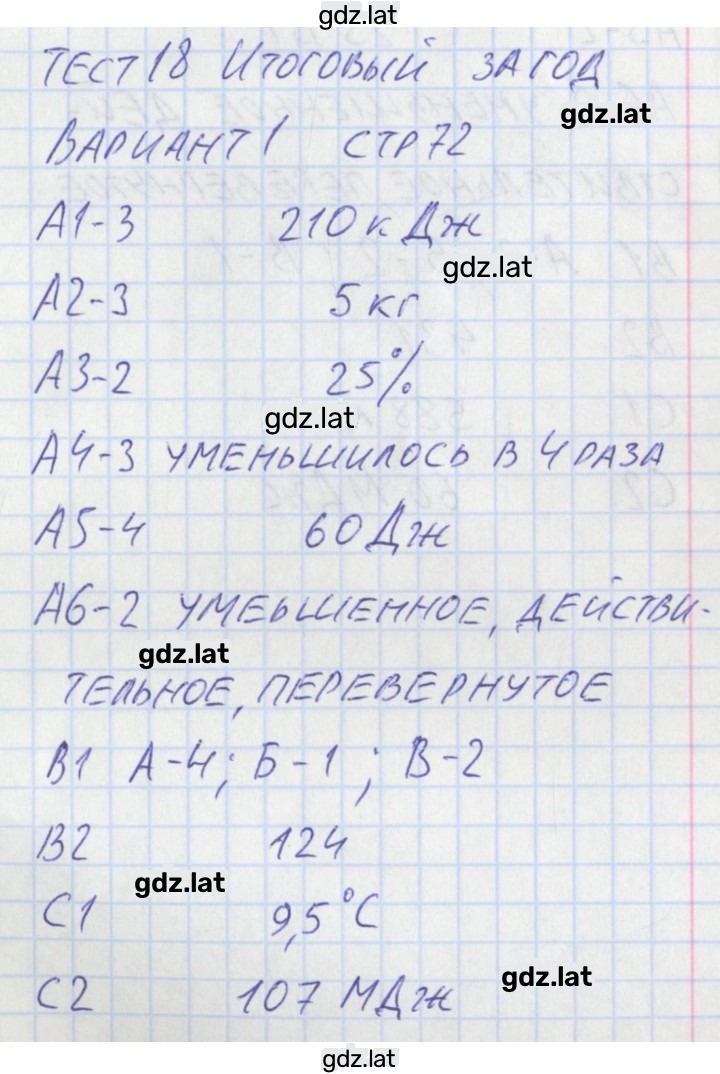 gdz.lat
ТЕСТ 18 ИТОГОВЫЙ ЗА ГОД
gdz.lat
ВАРИАНТ 1 СТР 72
А1-3 210 кДж
gdz.lat
А2-3 5 кг
А3-2 25%
gdz.lat
А4-3 УМЕНЬШИЛОСЬ В 4 РАЗА
А5-4 60 Дж
А6-2 УМЕЬШЕННОЕ, ДЕЙСТВИ-
gdz.lat
ТЕЛЬНОЕ, ПЕРЕВЕРНУТОЕ
В1 А-4; Б-1; В-2
В2 124
gdz.lat
С1 9,5°С
gdz.lat
С2 107 МДж
gdz.lat